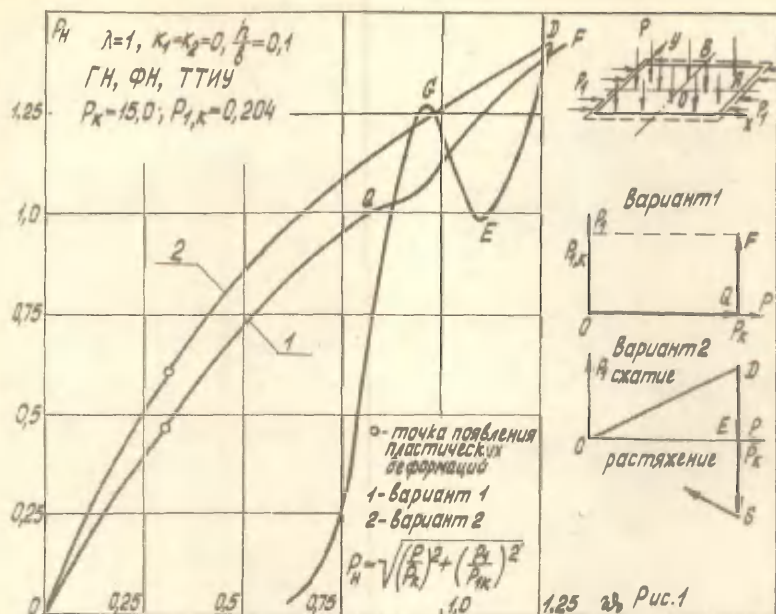 Pн
λ=1, κ₁=κ₂=0, h/б=0,1
ГН, ФН, ТТИУ
Pк=15,0; P₁,к=0,204
1,25
1,0
0,75
0,5
0,25
0
0,25
0,5
0,75
1,0
1,25
2
1
Q
G
E
D
F
о- точка появления
пластических
деформаций
1-вариант 1
2-вариант 2
Pн=√((P/Pк)²+(P₁/P₁к)²)
P
У
B
A
P₁
0
P₁
x
Вариант 1
P₁
P₁,к
F
Q
P
0
Pк
Вариант 2
P₁
сжатие
D
E
P
0
Pк
растяжение
G
Рис.1